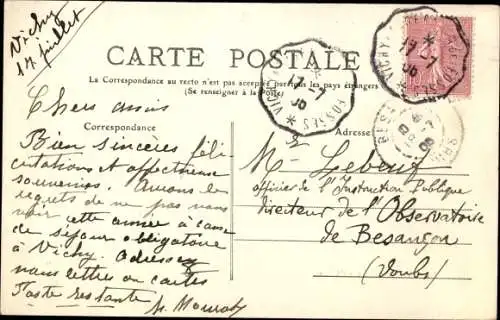 Vichy
17 juillet
CARTE POSTALE
La Correspondance au recto n'est pas acceptée par tous les pays étrangers
(Se renseigner à la Poste)
Correspondance
Chers amis
Bien sincères féli
citations et affectueux
souvenirs. Avons les
regrets de ne pas vous
voir cette année à cause
de séjour obligatoire
à Vichy. Adressez
nous lettres ou cartes
Poste restante
Adresse
M. Lebeuf
officier de l'Instruction Publique
Directeur de l'Observatoire
de Besançon
(Doubs)
VICHY
FOSSES
17-7
06
VICHY
17-7
06